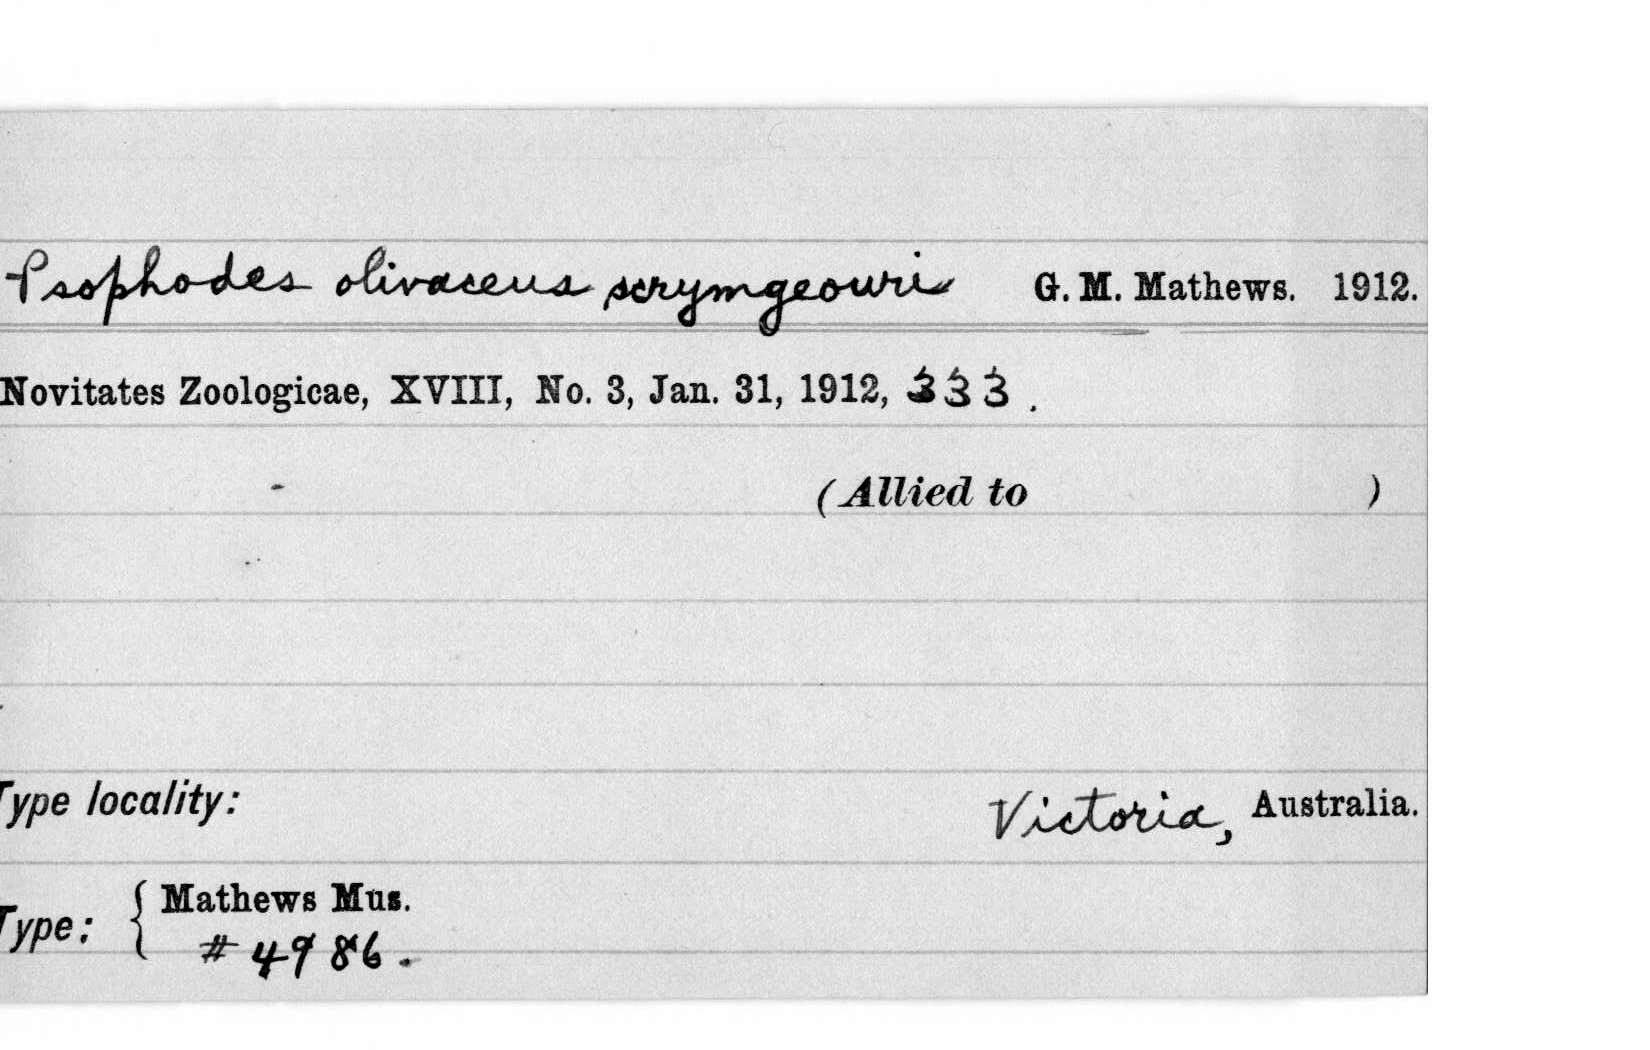 Psophodes olivaceus scrymgeouri G. M. Mathews. 1912.
Novitates Zoologicae, XVIII, No. 3, Jan. 31, 1912, 333.
(Allied to )
Type locality: Victoria, Australia.
Type: { Mathews Mus.
# 4986.